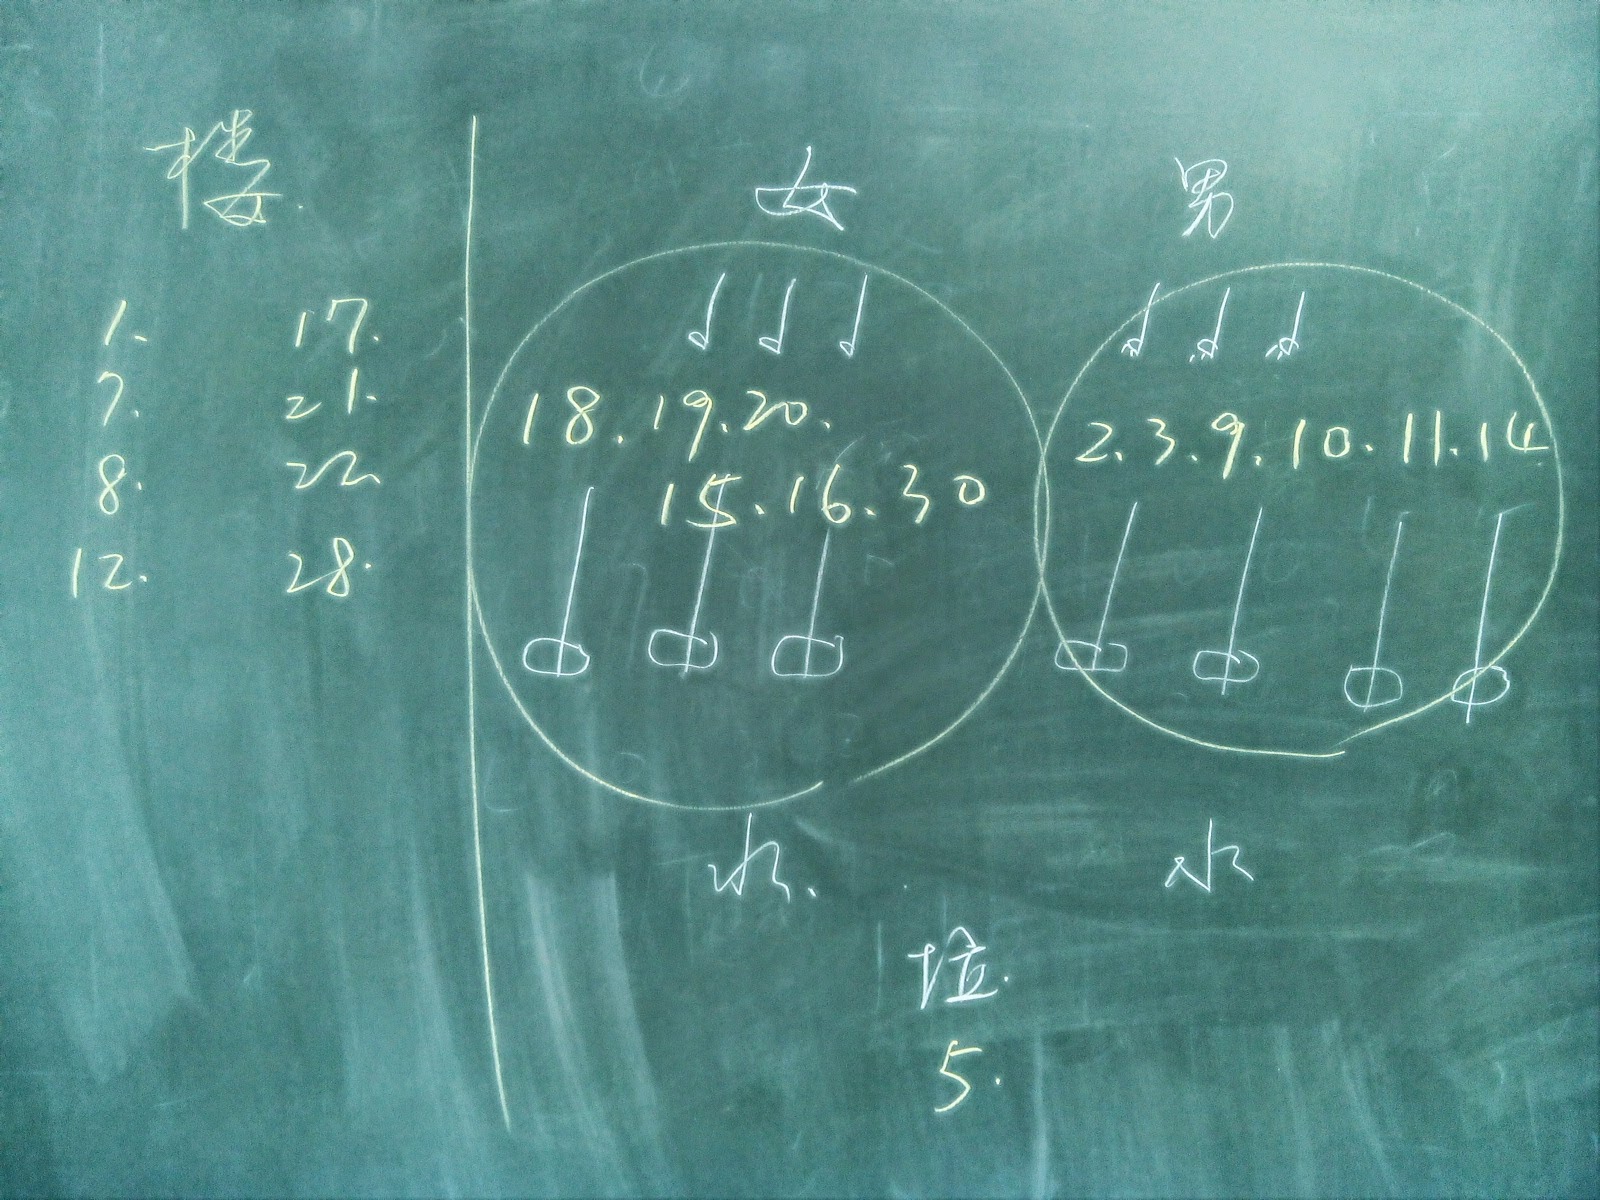 楼.
1. 17.
7. 21.
8. 22
12. 28.
女 男
18. 19. 20.
15. 16. 30
2. 3. 9. 10. 11. 14
水. 水
垃.
5.